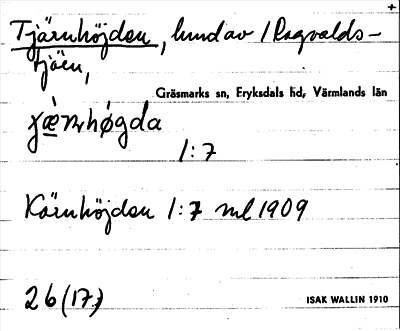 Tjärnhöjden, lund av / Ragvalds-
tjäen,
Gräsmarks sn, Fryksdals hd, Värmlands län
høgda
1:7
Kärnhöjden 1:7 ml 1909
26 (17)
ISAK WALLIN 1910